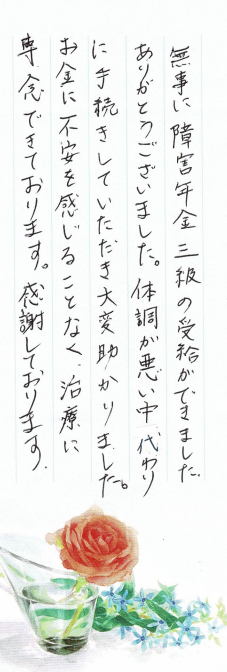 無事に障害年金三級の受給ができました。
ありがとうございました。体調が悪い中代わり
に手続きしていただき大変助かりました。
お金に不安を感じることなく、治療に
専念できております。感謝しております。